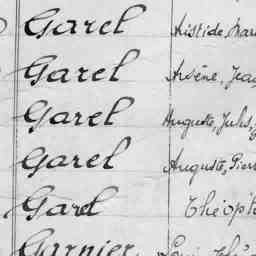 Garel Aristide, Mar
Garel Arsène, Jean
Garel Auguste, Jules,
Garel Auguste, Pierr
Garel Théoph
Garnier